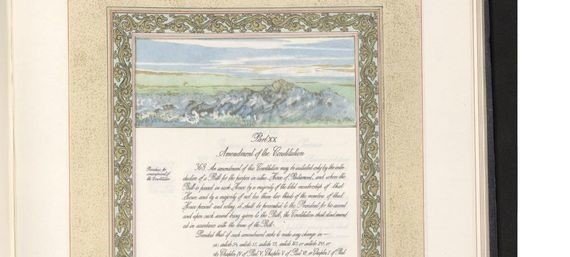 Part XX
Amendment of the Constitution
Procedure for
amendment of
the Constitution.
368. An amendment of this Constitution may be initiated only by the intro-
duction of a Bill for the purpose in either House of Parliament, and when the
Bill is passed in each House by a majority of the total membership of that
House and by a majority of not less than two-thirds of the members of that
House present and voting, it shall be presented to the President for his assent
and upon such assent being given to the Bill, the Constitution shall stand amend-
ed in accordance with the terms of the Bill:
Provided that if such amendment seeks to make any change in—
(a) article 54, article 55, article 73, article 162 or article 241, or
(b) Chapter IV of Part V, Chapter V of Part VI, or Chapter I of Part